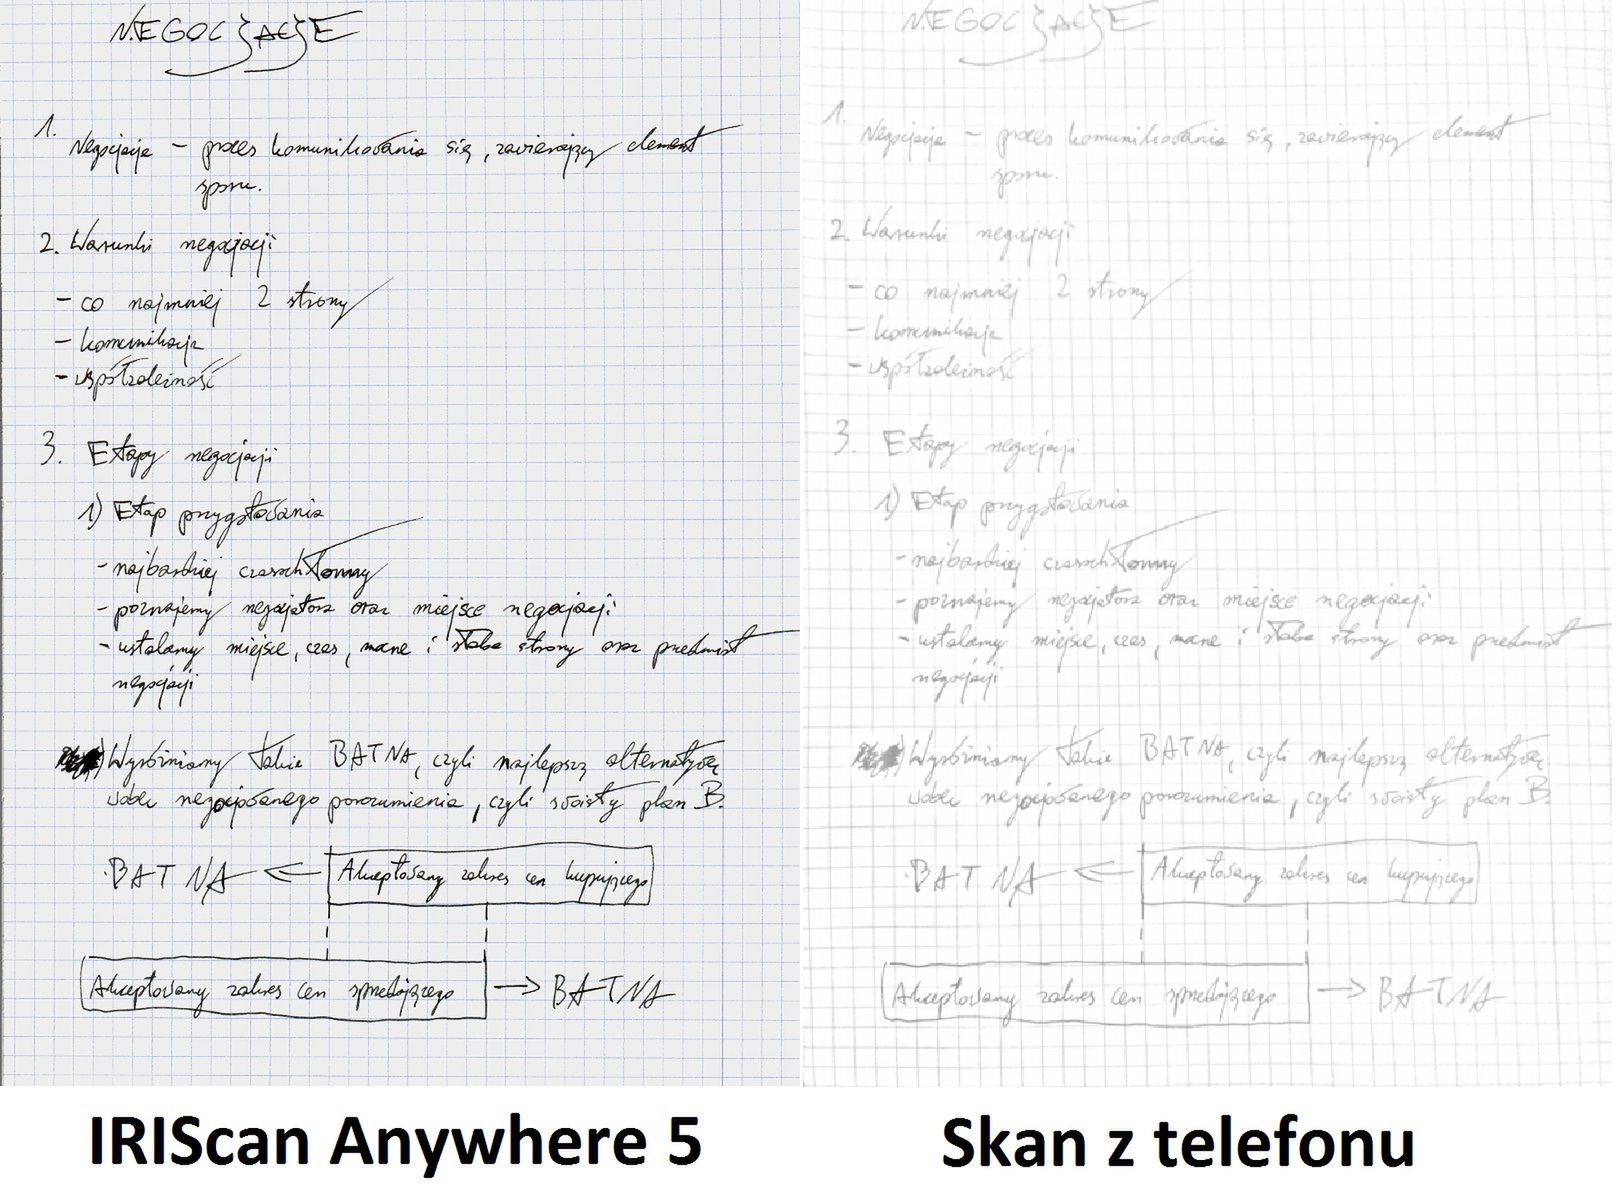 NEGOCJACJE
1. Negocjacje – proces komunikowania się, zawierający element
sporu.
2. Warunki negocjacji
- co najmniej 2 strony
- komunikacja
- współzależność
3. Etapy negocjacji
1) Etap przygotowania
- najbardziej czasochłonny
- poznajemy negocjatora oraz miejsce negocjacji
- ustalamy miejsce, czas, mocne i słabe strony oraz przedmiot
negocjacji
Wyróżniamy także BATNA, czyli najlepszą alternatywę
wobec negocjowanego porozumienia, czyli swoisty plan B.
BATNA ⇐ Akceptowany zakres cen kupującego
Akceptowany zakres cen sprzedającego → BATNA
IRIScan Anywhere 5
NEGOCJACJE
1. Negocjacje – proces komunikowania się, zawierający element
sporu.
2. Warunki negocjacji
- co najmniej 2 strony
- komunikacja
- współzależność
3 Etapy negocjacji
1) Etap przygotowania
- najbardziej czasochłonny
- poznajemy negocjatora oraz miejsce negocjacji
- ustalamy miejsce, czas, mocne i słabe strony oraz przedmiot
negocjacji
Wyróżniamy także BATNA, czyli najlepszą alternatywę
wobec negocjowanego porozumienia, czyli swoisty plan B.
BATNA ⇐ Akceptowany zakres cen kupującego
Akceptowany zakres cen sprzedającego → BATNA
Skan z telefonu